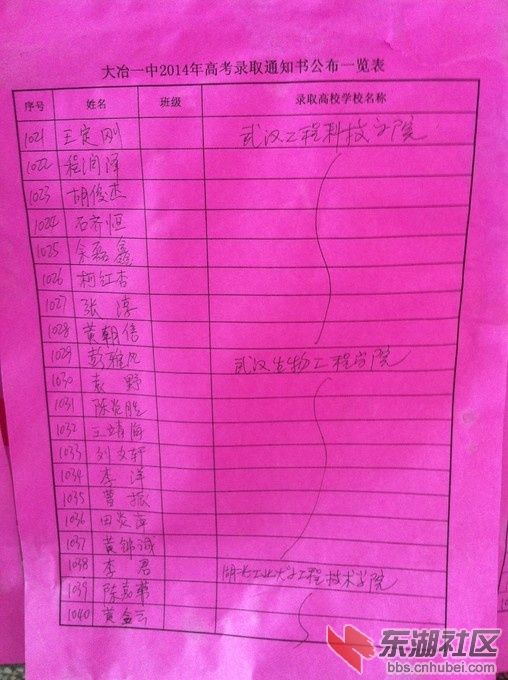 大冶一中2014年高考录取通知书公布一览表
序号 姓名 班级 录取高校学校名称
1021 王定刚 武汉工程科技学院
1022 程润泽
1023 胡俊杰
1024 石齐恒
1025 余磊鑫
1026 柯红杏
1027 张淳
1028 黄朝信
1029 彭雅凡 武汉生物工程学院
1030 袁野
1031 陈炎胜
1032 王靖海
1033 刘文轩
1034 李洋
1035 曹振
1036 田炎萍
1037 黄锦诚
1038 李君 湖北工业大学工程技术学院
1039 陈志勇
1040 黄金云
东湖社区
bbs.cnhubei.com